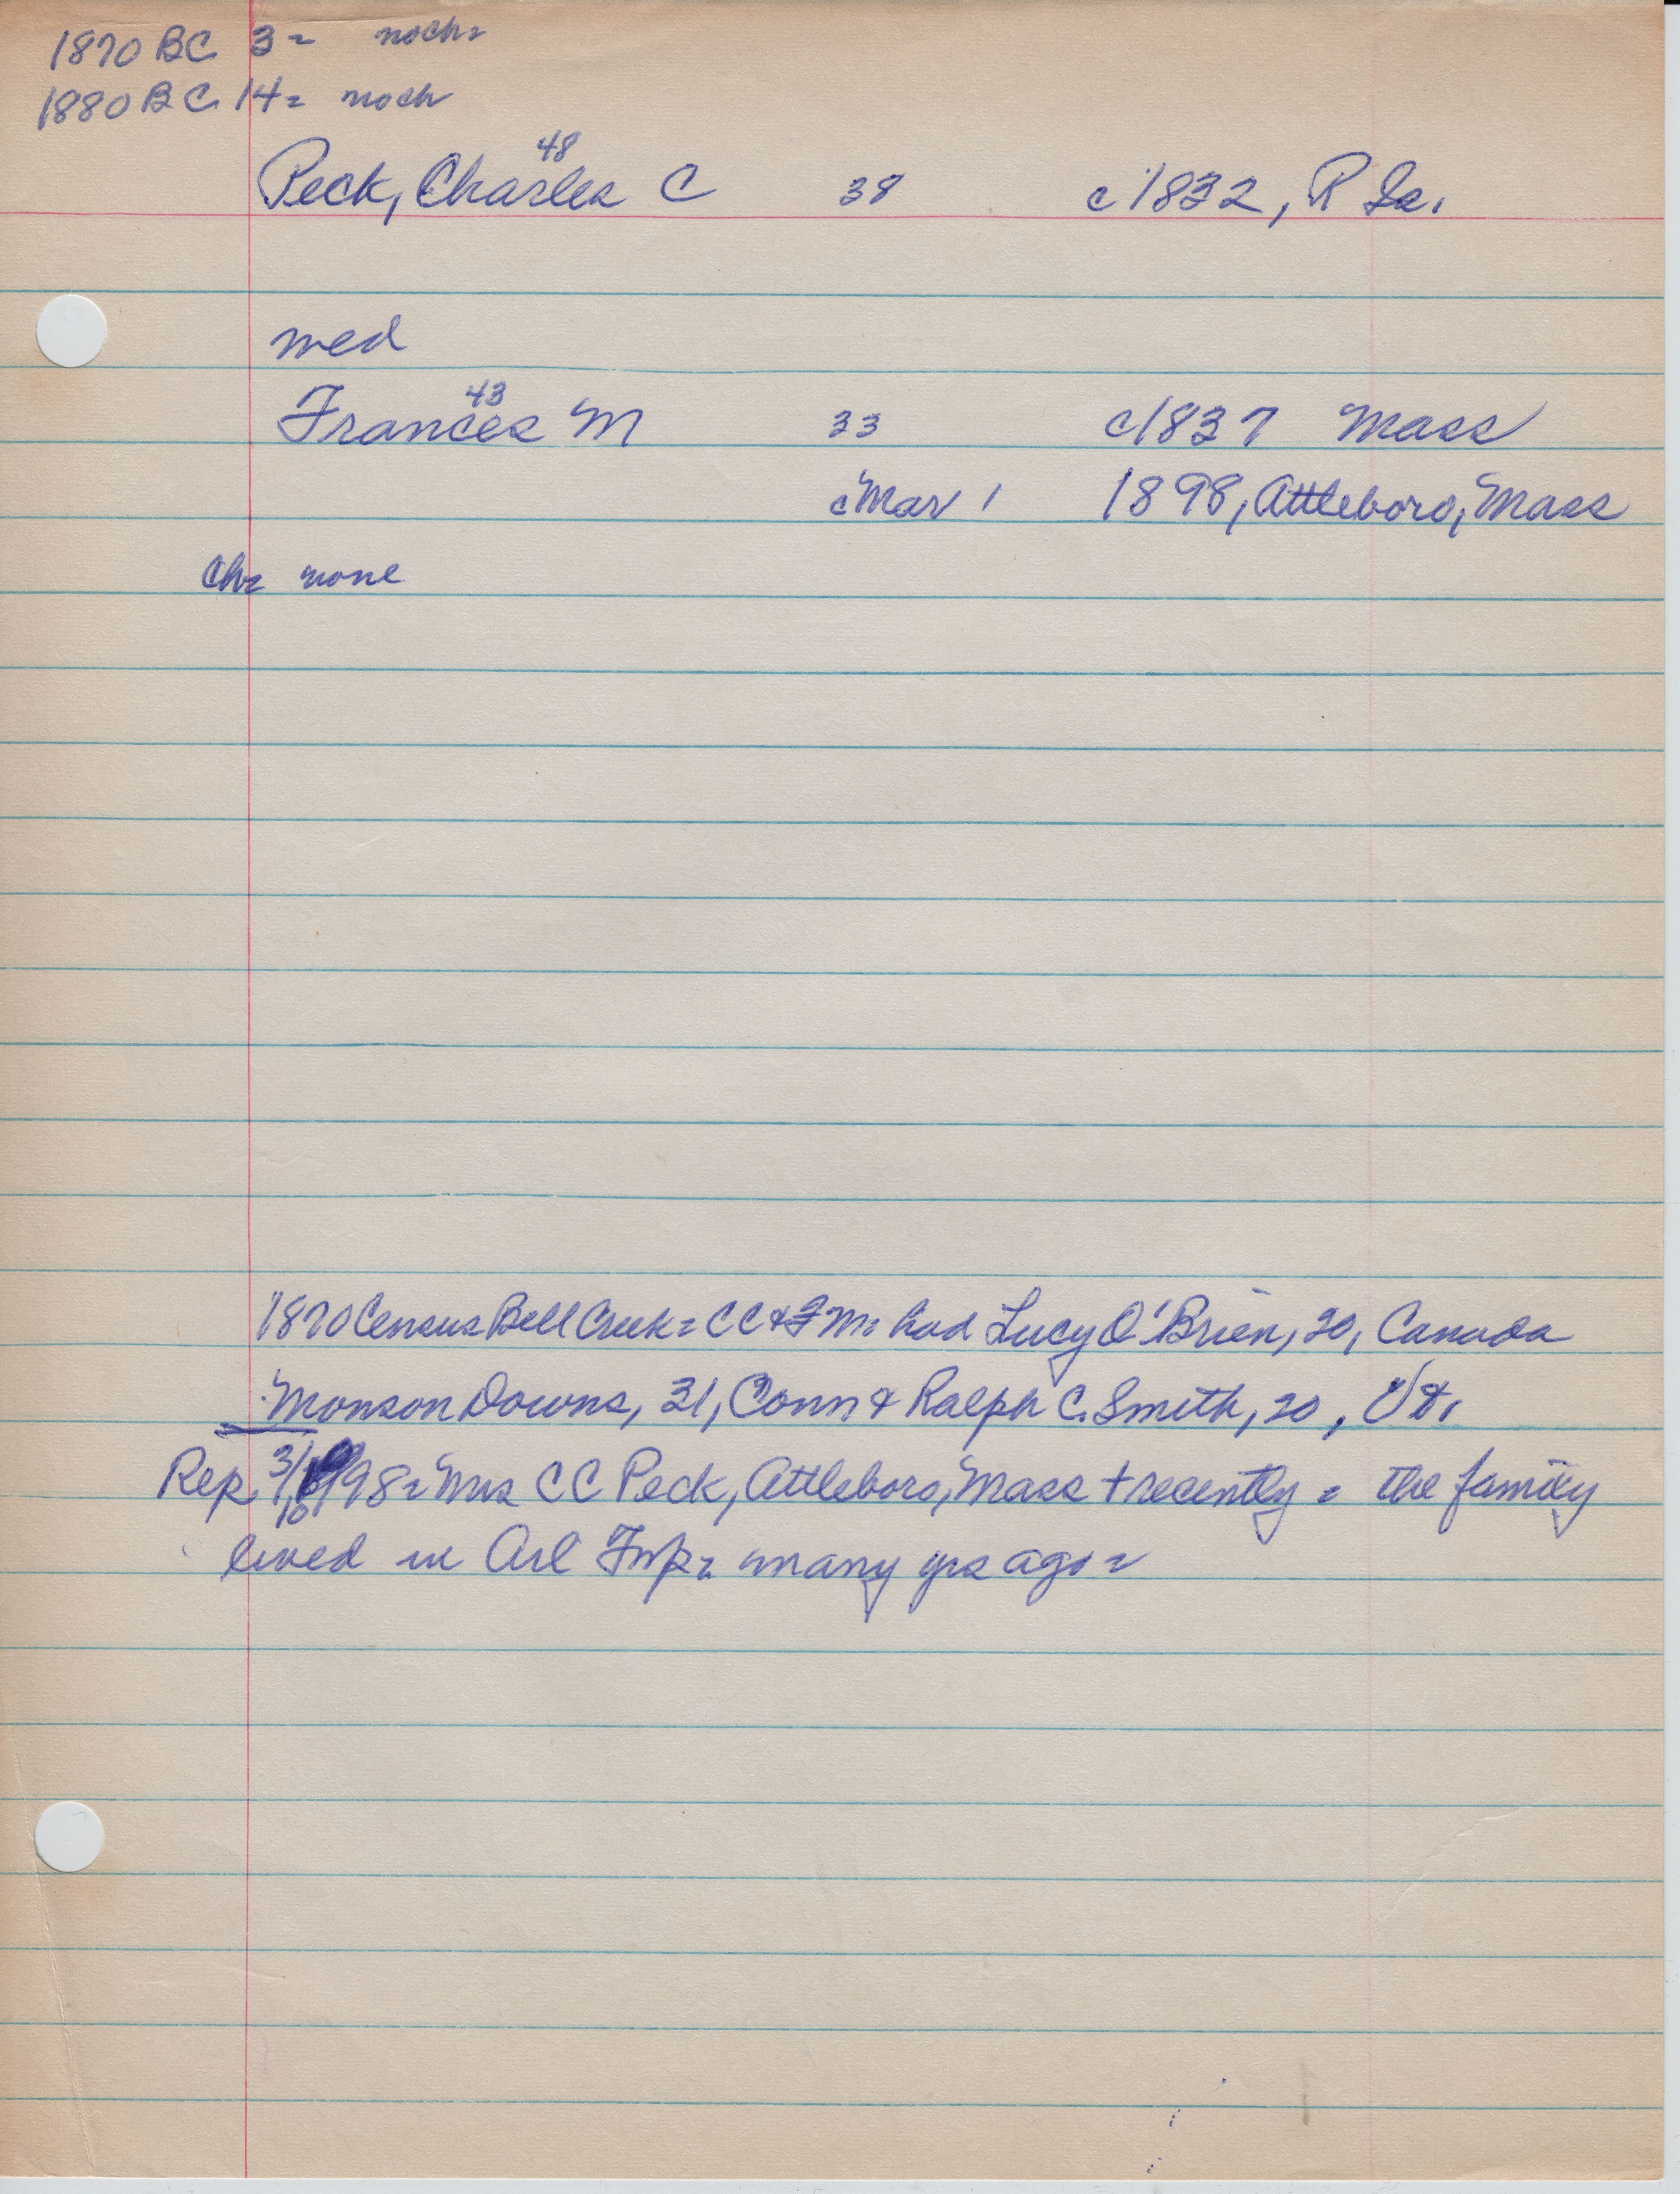 1870 BC 3= noch=
1880 BC 14= noch
48
Peck, Charles C 38 c1832, R Is.
med
43
Frances M 33 c1837 Mass
cMar 1 1898, Attleboro, Mass
Ch= none
1870 Census Bell Creek= CC & FM= had Lucy O'Brien, 20, Canada
Monson Downs, 31, Conn & Ralph C. Smith, 20, Vt.
Rep 3/10/98= Mrs CC Peck, Attleboro, Mass + recently = the family
lived in Arl Twp= many yrs ago=